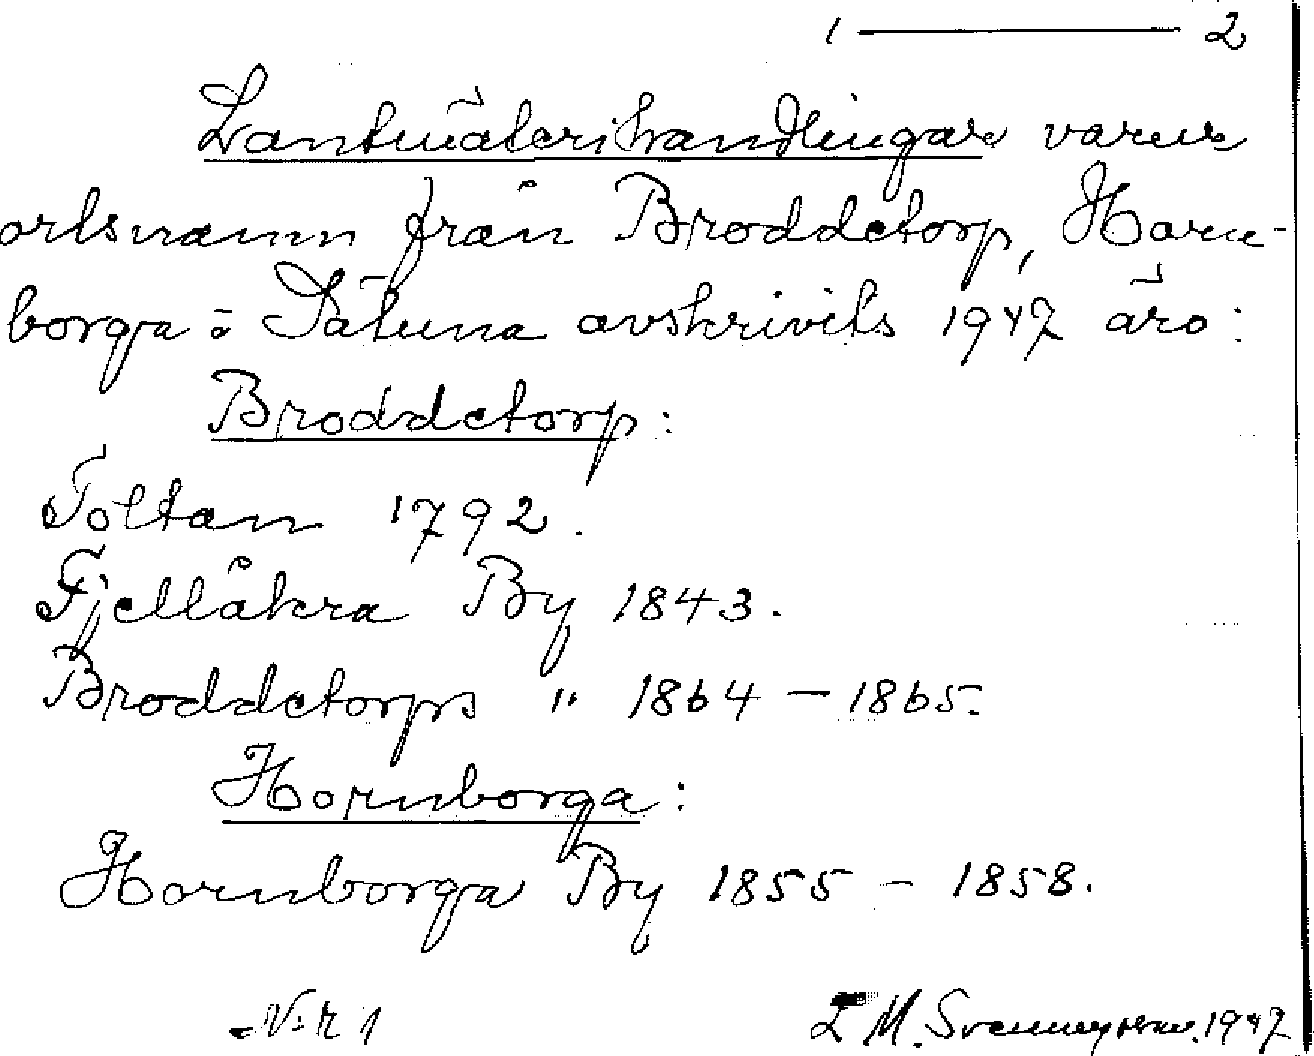 1 — 2
Lantmäterihandlingar varur
ortsnamn från Broddetorp, Horn-
borga o Sätuna avskrivits 1947 äro:
Broddetorp:
Toltan 1792.
Fjellåkra By 1843.
Broddetorps " 1864 – 1865.
Hornborga:
Hornborga By 1855 – 1858.
N:r 1
M. 1947